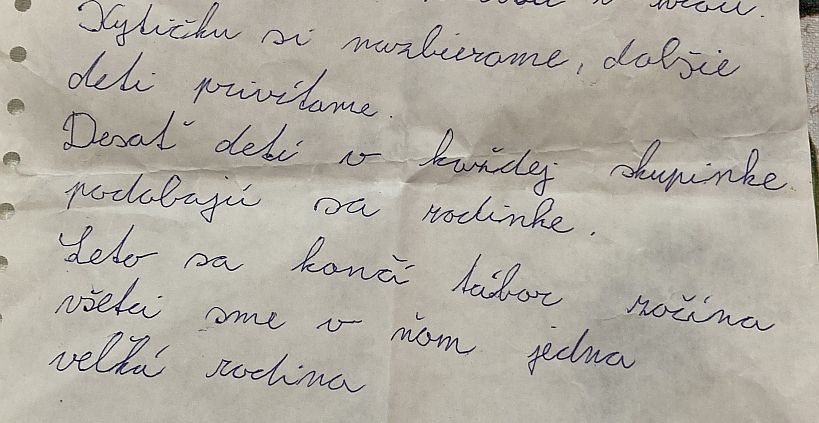 Kytičku si nazbierame, dalšie
deti privítame.
Desať detí v každej skupinke
podobajú sa rodinke.
Leto sa končí tábor začína
všetci sme v ňom jedna
veľká rodina